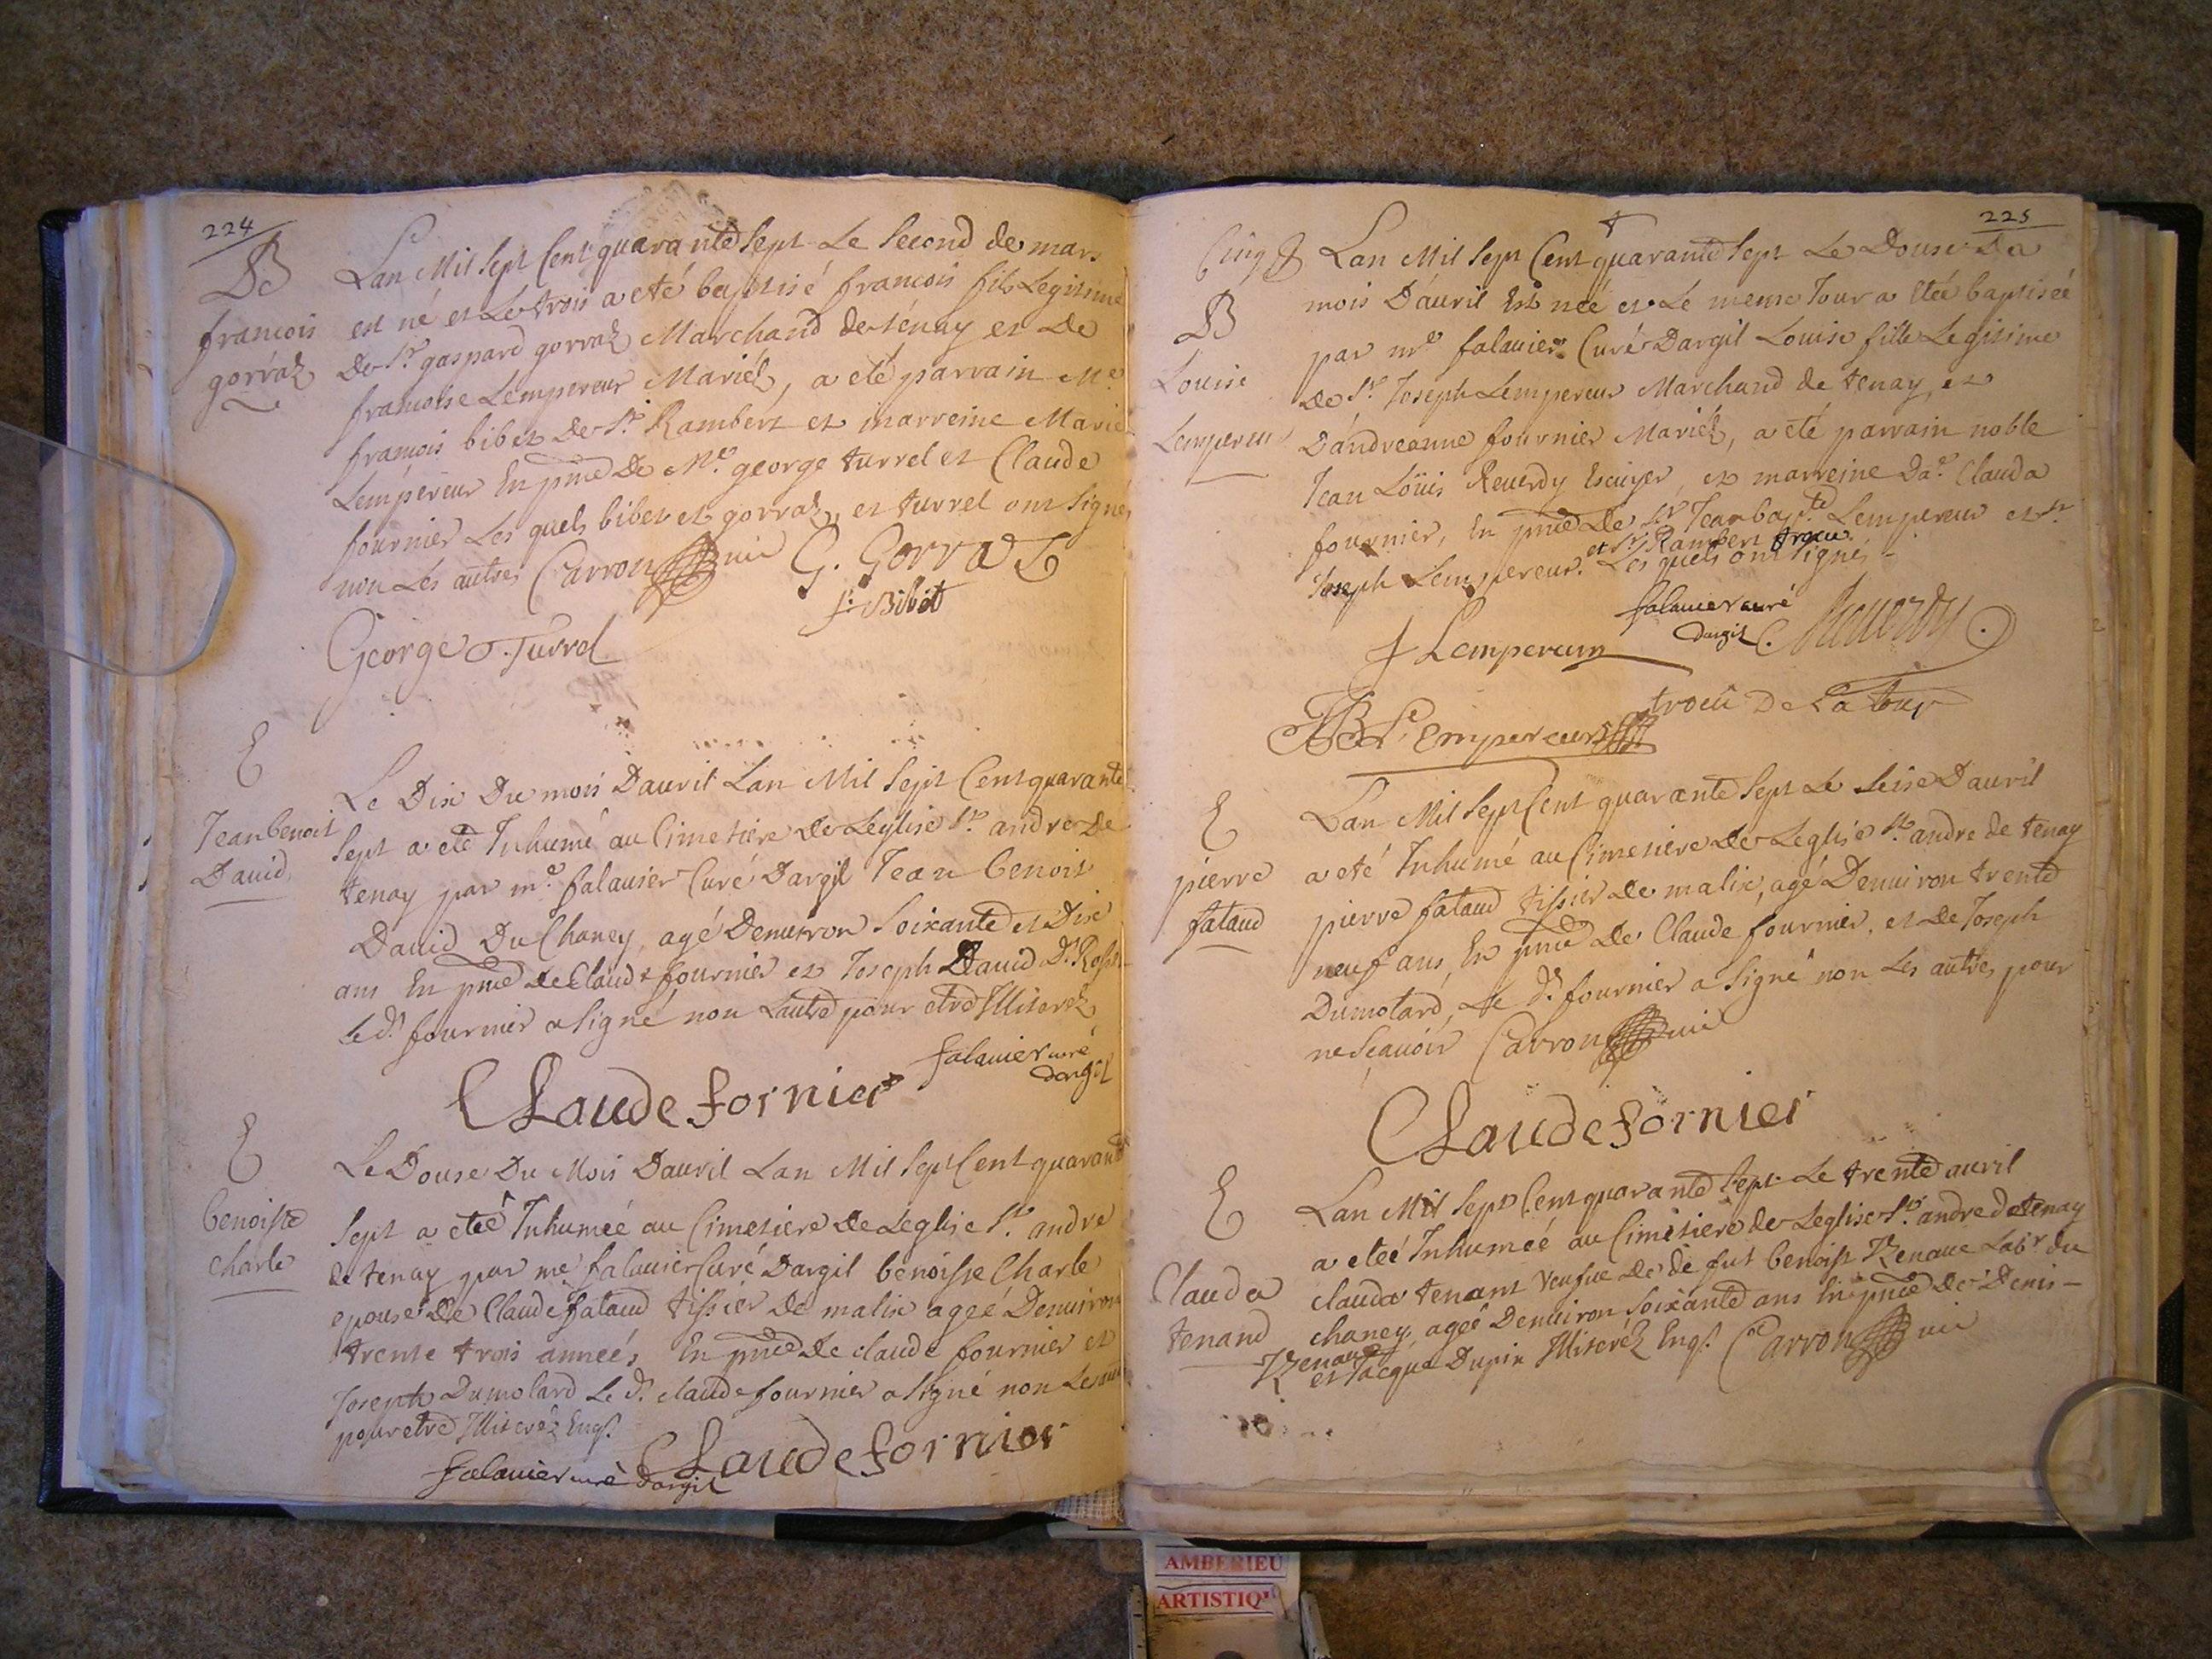 224
B
francois
gorraz
Lan Mil Sept Cent quarante Sept Le Second de mars
est né et Le trois a eté baptisé francois fils Legitime
De Sr. gaspard gorraz Marchand de tenay et De
francoise Lempereur Mariéz, a eté parrain Me.
francois bibet De St. Rambert et marreine Marie
Lempereur En pnce De Me. george turrel et Claude
fournier Les quels bibet et gorraz, et turrel ont Signé
non Les autres Carron vic G. Gorraz
f. Bibet
George Turrel
E
Jean benoit
David
Le Dix Du mois Dauril Lan Mil Sept Cent quarante
Sept a eté Inhumé au Cimetiere de Leglise St. andre De
tenay par mre. falavier Curé Dargil Jean benoit
David Du Chaney agé Denuiron Soixante et Dix
ans En pnce de Claude fournier et Joseph David
le dt. fournier a Signé non Lautre pour etre Illiterez
falavier curé
dargil
Claude fornier
E
benoiste
Charle
Le Douse Du Mois Dauril Lan Mil Sept Cent quarante
Sept a eteé Inhumeé au Cimetiere de Leglise St. andre
de tenay par me falavier Curé Dargil benoiste Charle
epouse de Claude fataud tissier de malix ageé Denuiron
trente trois anneés En pnce de Claude fournier et
Joseph Dumolard Le dt. claude fournier a Signé non Les
pour etre Illiteréz Enqs.
Claude fornier
falavier curé Dargil
225
Cinq
B
Louise
Lempereur
Lan Mil Sept Cent quarante Sept Le Douse Du
mois Dauril Est neé et Le meme Jour a Eteé baptiseé
par mre falavier Curé Dargil Louise fille Legitime
De Sr. Joseph Lempereur Marchand de tenay, et
Dandreanne fournier Mariéz, a eté parrain noble
Jean Loüis Reuerdy Escuyer, et marreine Dae. Clauda
fournier, En pnce de Sr Jean bapte Lempereur et Sr
et Sr. Rambert trocu
Joseph Lempereur. Les quels ont Signés
falavier curé
dargil
Reuerdy
J Lempereur
trocu De La tour
JB Lempereur
E
pierre
fataud
Lan Mil Sept Cent quarante Sept Le Seise Dauril
a eté Inhumé au Cimetiere de Leglise St. andre de tenay
pierre fataud tissier de malix, agé Denuiron trente
neuf ans, En pnce de Claude fournier, et de Joseph
Dumolard, Le dt. fournier a Signé non Les autres pour
ne Scauoir Carron vic
Claude fornier
E
Clauda
tenand
Lan Mil Sept Cent quarante Sept Le trente auril
a eteé Inhumeé au Cimetiere de Leglise St. andre de tenay
clauda tenant Veufue de de fut benoist Renaue Labr. du
chaney, ageé Denuiron Soixante ans En pnce de Denis
Renaue
et Jacque Dupin Illiteréz Enqs. Carron vic
AMBERIEU
ARTISTIQU